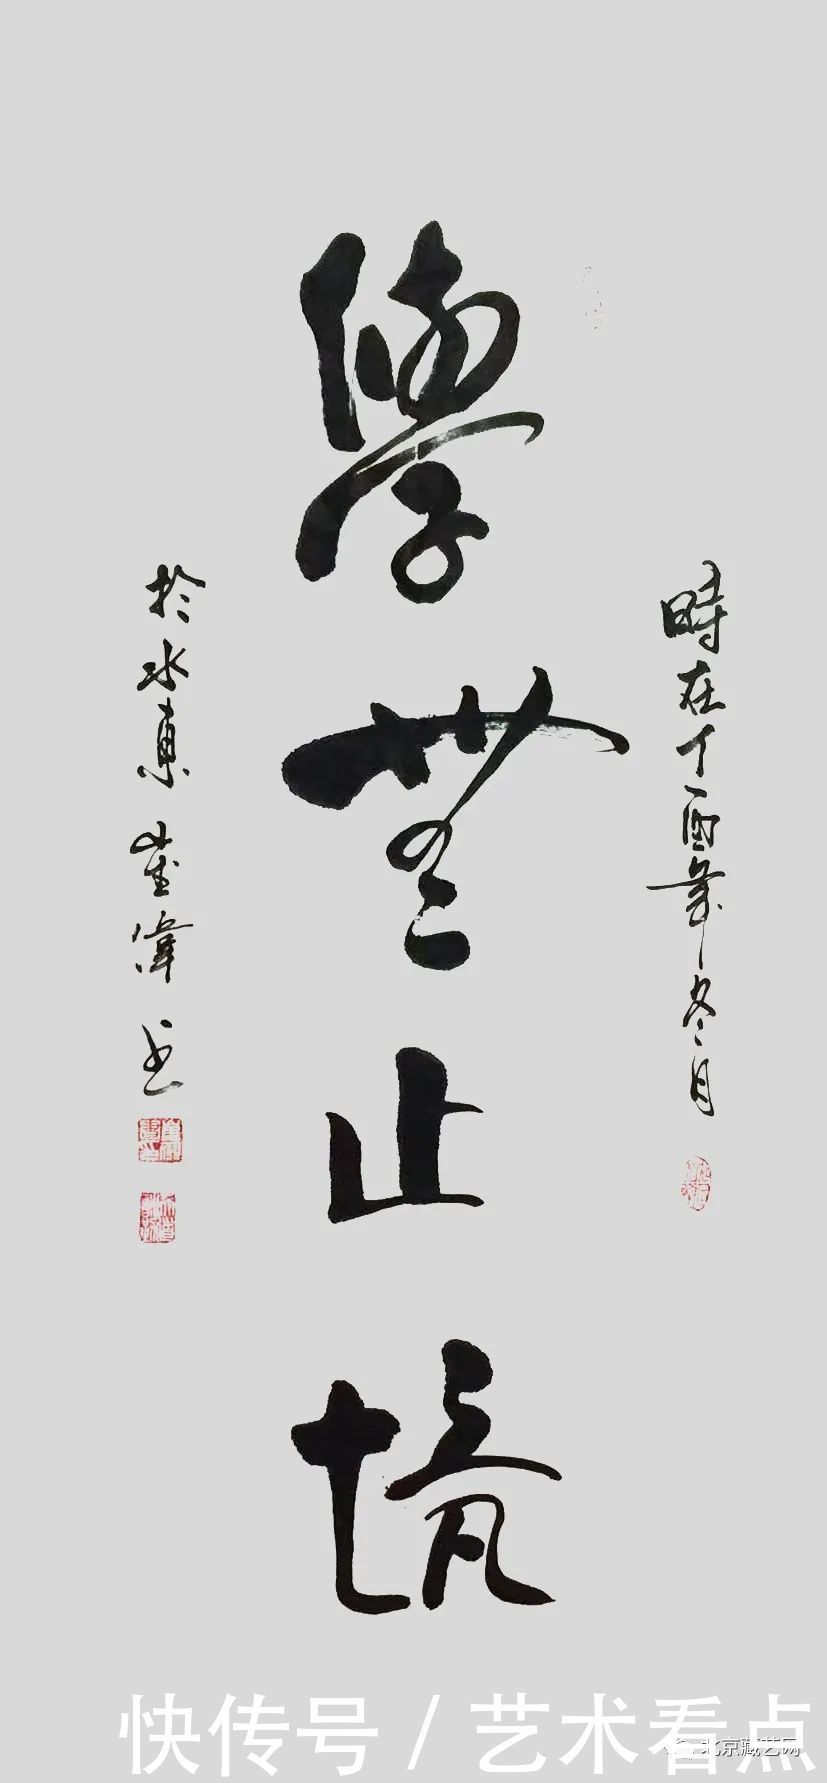 時在丁酉年冬月
學無止境
於水東崔偉書
快传号/艺术看点
北京藏艺网